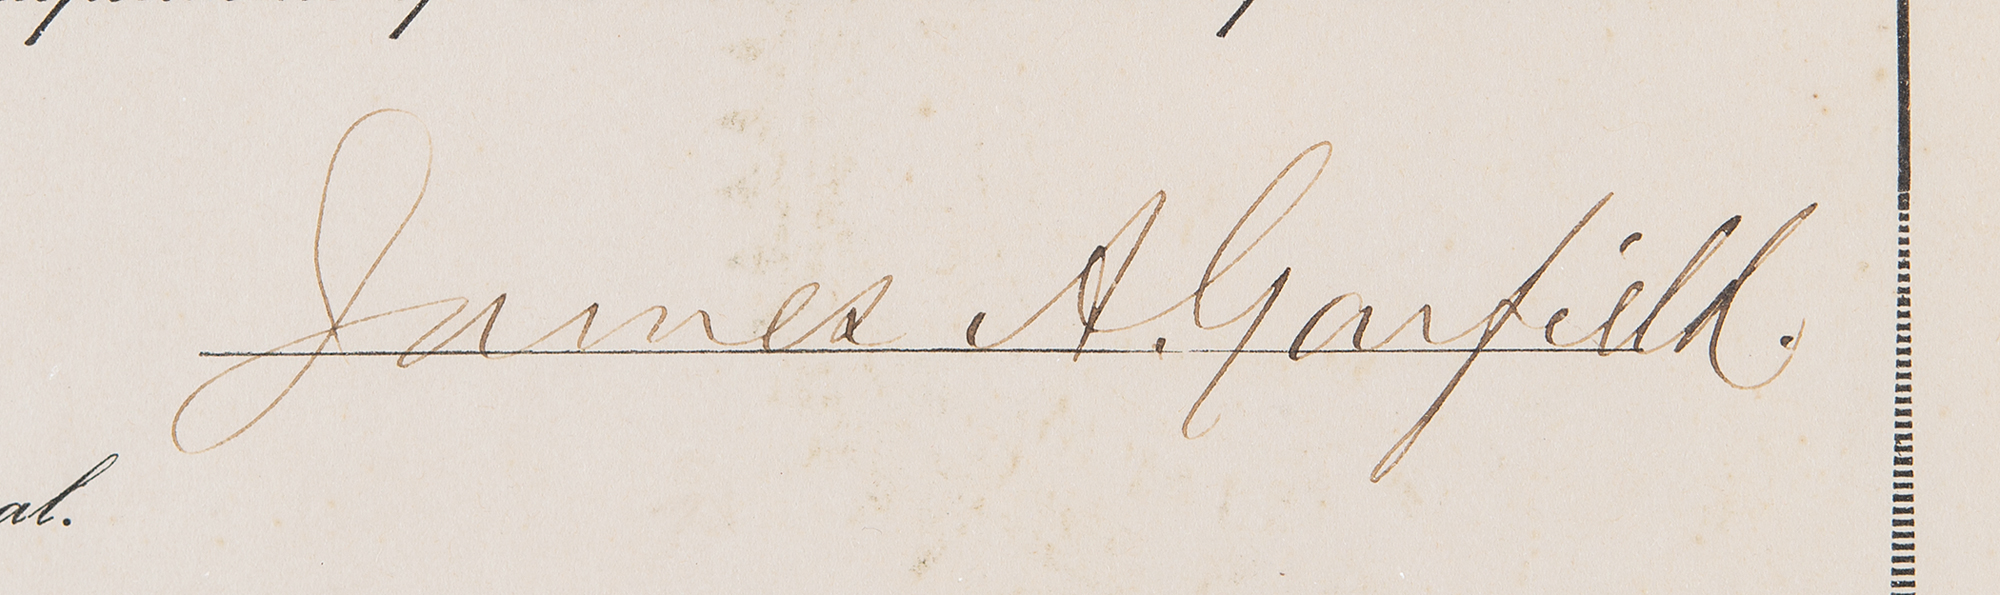 James A. Garfield.
al.